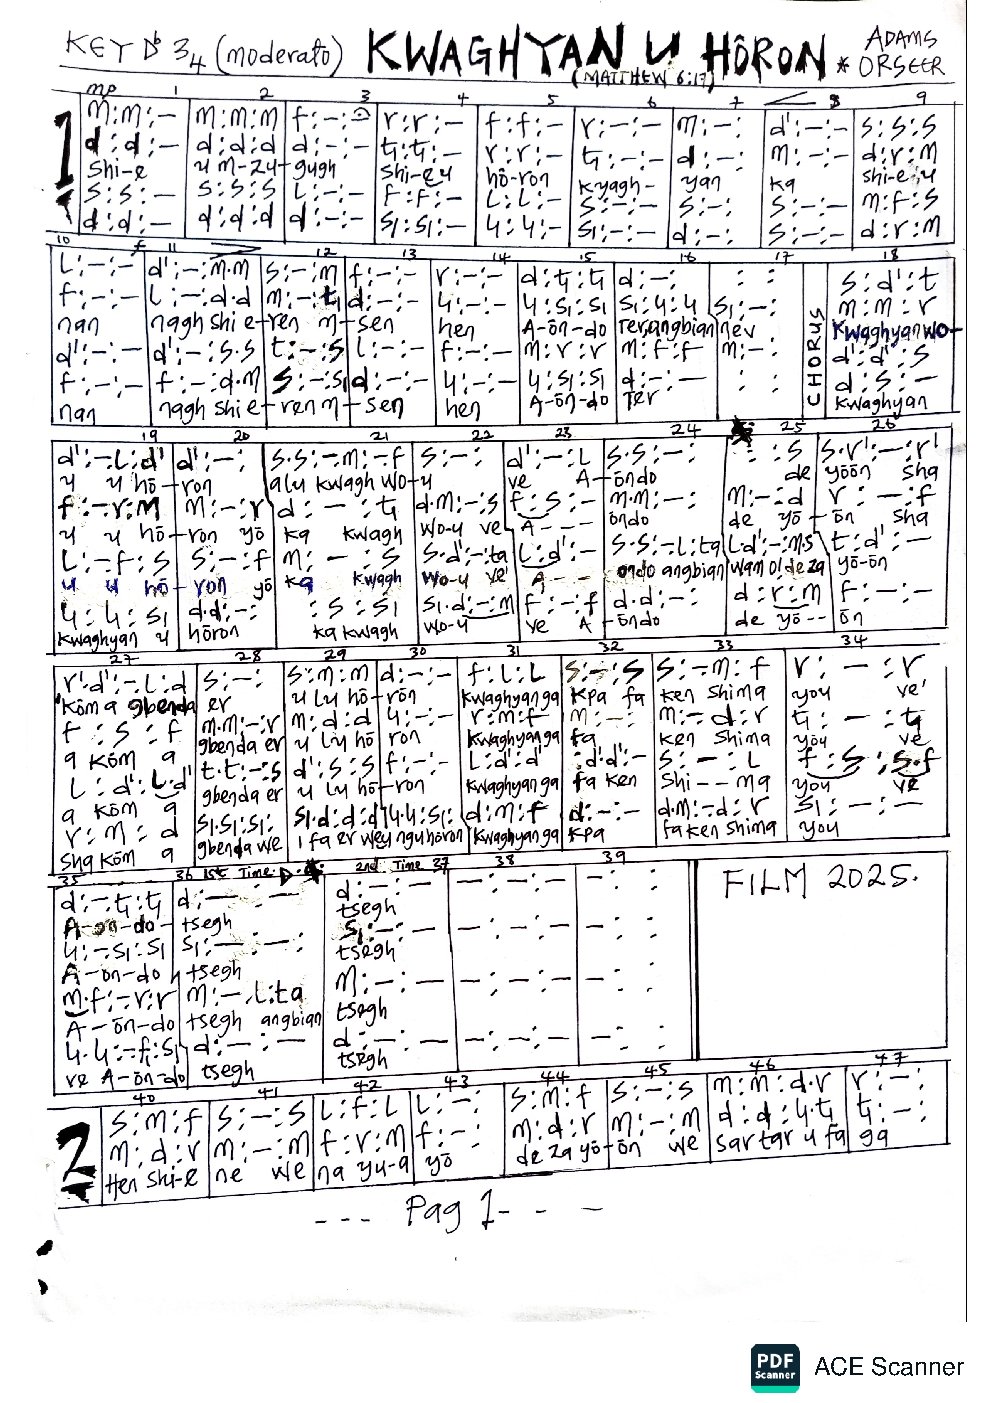 KEY Db 3/4 (moderato) KWAGHYAN U HÔRON * ADAMS ORSEER
(MATTHEW 6:17)
mp 1 2 3 4 5 6 7 8 9
1
m:m:– m:m:m f:–:– r:r:– f:f:– r:–:– m:–: d':–:– s:s:s
d:d:– d:d:d d:–:– t₁:t₁:– r:r:– t₁:–:– d:–: m:–:– d:r:m
Shi-e u m-zu-gugh Shi-e u hō-ron kyagh- yan ka shi-e u
s:s:– s:s:s l:–:– f:f:– l:l:– s:–:– s:–: s:–:– m:f:s
d:d:– d:d:d d:–:– s₁:s₁:– l₁:l₁:– s₁:–:– d:–: s:–:– d:r:m
10 f 11 12 13 14 15 16 17 18
l:–:– d':–:m.m s:–:m f:–:– r:–:– d:t₁:t₁ d:–: : : s:d':t
f:–:– l:–:d.d m:–:t₁ d:–:– l₁:–:– l₁:s₁:s₁ s₁:l₁:l₁ s₁:–: m:m:r
nan nagh shi e-ren m-sen hen A-ōn-do Ter angbian nev CHORUS Kwaghyan wo-
d':–:– d':–:s.s t:–:s l:–:– f:–:– m:r:r m:f:f m:–: d':d':s
f:–:– f:–:d.m s:–:s₁ d:–:– l₁:–:– l₁:s₁:s₁ d:–:– : : d:s:–
nan nagh shi e-ren m-sen hen A-ōn-do Ter Kwaghyan
19 20 21 22 23 24 25 26
d':–.l:d' d':–: s.s:–.m:–.f s:–: d':–:l s.s:–: : :s s.r':–:r'
u u hō-ron alu kwagh wo-u ve A-ōndo de yōōn sha
f:–.r:m m:–:r d:–:t₁ d.m:–:s f:s:– m.m:–: m:–:d r:–:f
u u hō-ron yō ka kwagh wo-u ve A--- ōndo de yō-ōn sha
l:–.f:s s:–:f m:–:s s.d':–:ta l:d':– s.s:–.l:ta l.d':–:m.s t:d':–
u u hō-ron yō ka kwagh wo-u ve A-- ondo angbian wam o! de za yō-ōn
l₁:l₁:s₁ d.d:–: :s:s₁ s₁.d:–:m f:–:f d.d:–: d:r:m f:–:–
kwaghyan u hōron ka kwagh wo-u ve A-ōndo de yō-- ōn
27 28 29 30 31 32 33 34
r'.d':–.l:d s:–: s:m:m d:–: f:l:l s:–:s s:–.m:f r:–:r
kōm a gbenda er u lu hō-rōn kwaghyan ga kpa fa ken shima you ve
f:s:f m.m:–:r m:d:d l₁:–: r:m:f m:–: m:–.d:r t₁:–:t₁
a kōm a gbenda er u lu hō ron kwaghyan ga fa ken shima you ve
l:d':l.d' t.t:–:s d':s:s f:–: l:d':d' :d'.d':– s:–:l f:s:s.f
a kōm a gbenda er u lu hō-ron kwaghyan ga fa ken Shi--ma you ve
r:m:d s₁.s₁:s₁: s₁.d:d:d l₁.l₁:s₁: d:m:f d:–:– d.m:–.d:r s₁:–:–
Sha kōm a gbenda we i fa er wey ngu hōron kwaghyan ga kpa fa ken shima you
35 36 1st Time D. 2nd Time 37 38 39
d:–.t₁:t₁ d:–:– d:–:– –:–:– –:–: FILM 2025.
A-on-do-tsegh tsegh
l₁:–.s₁:s₁ s₁:–:– s₁:–:– –:–:– –:–:
A-on-do tsegh tsegh
m.f:–.r:r m:–.l:ta m:–:– –:–:– –:–:
A-ōn-do tsegh angbian tsegh
l₁.l₁:–.f₁:s₁ d:–:– d:–:– –:–:– –:–:
ve A-ōn-do tsegh tsegh
40 41 42 43 44 45 46 47
2
s:m:f s:–:s l:f:l l:–: s:m:f s:–:s m:m:d.r r:–:
m:d:r m:–:m f:r:m f:–: m:d:r m:–:m d:d:l₁.t₁ t₁:–:
Hen shi-e ne we na yu-a yō de za yō-ōn we sar tar u fa ga
--- Pag 1---
PDF Scanner ACE Scanner